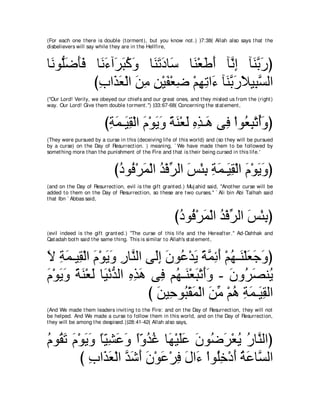 (For each one there is double (torment), but you know not.) )7:38( Allah also says that the
disbelievers will say while they are in the Hellfire,
﴿رَبَّنَآ إِنَّآ أَطَعْنَا سَادَتَنَا وَكُبَرَآءَنَا فَأَضَلُّونَا
السَّبِيلاْرَبَّنَآ ءَاتِهِمْ ضِعْفَيْنِ مِنَ الْعَذَابِ﴾
("Our Lord! Verily, we obeyed our chiefs and our great ones, and they misled us from the (right)
way. Our Lord! Give them double torment.") )33:67-68( Concerning the statement,
﴿وَأُتْبِعُواْ فِى هَـذِهِ لَعْنَةً وَيَوْمَ الْقِيَـمَةِ﴾
(They were pursued by a curse in this (deceiving life of this world) and (so they will be pursued
by a curse) on the Day of Resurrection. ) meaning, `We have made them to be followed by
something more than the punishment of the Fire and that is their being cursed in this life.'
﴿وَيَوْمَ الْقِيَـمَةِ بِئْسَ الرِّفْدُ الْمَرْفُودُ﴾
(and on the Day of Resurrection, evil is the gift granted.) Mujahid said, "Another curse will be
added to them on the Day of Resurrection, so these are two curses." `Ali bin Abi Talhah said
that Ibn `Abbas said,
﴿بِئْسَ الرِّفْدُ الْمَرْفُودُ﴾
(evil indeed is the gift granted.) "The curse of this life and the Hereafter." Ad-Dahhak and
Qatadah both said the same thing. This is similar to Allah's statement,
﴿وَجَعَلْنَـهُمْ أَئِمَّةً يَدْعُونَ إِلَى النَّارِ وَيَوْمَ الْقِيَـمَةِ لاَ
يُنصَرُونَ - وَأَتْبَعْنَـهُم فِى هَذِهِ الدُّنْيَا لَعْنَةً وَيَوْمَ
الْقِيَـمَةِ هُمْ مِّنَ الْمَقْبُوحِينَ ﴾
(And We made them leaders inviting to the Fire: and on the Day of Resurrection, they will not
be helped. And We made a curse to follow them in this world, and on the Day of Resurrection,
they will be among the despised.)(28:41-42) Allah also says,
﴿النَّارُ يُعْرَضُونَ عَلَيْهَا غُدُوّاً وَعَشِيّاً وَيَوْمَ تَقُومُ
السَّاعَةُ أَدْخِلُواْ ءَالَ فِرْعَوْنَ أَشَدَّ الْعَذَابِ ﴾